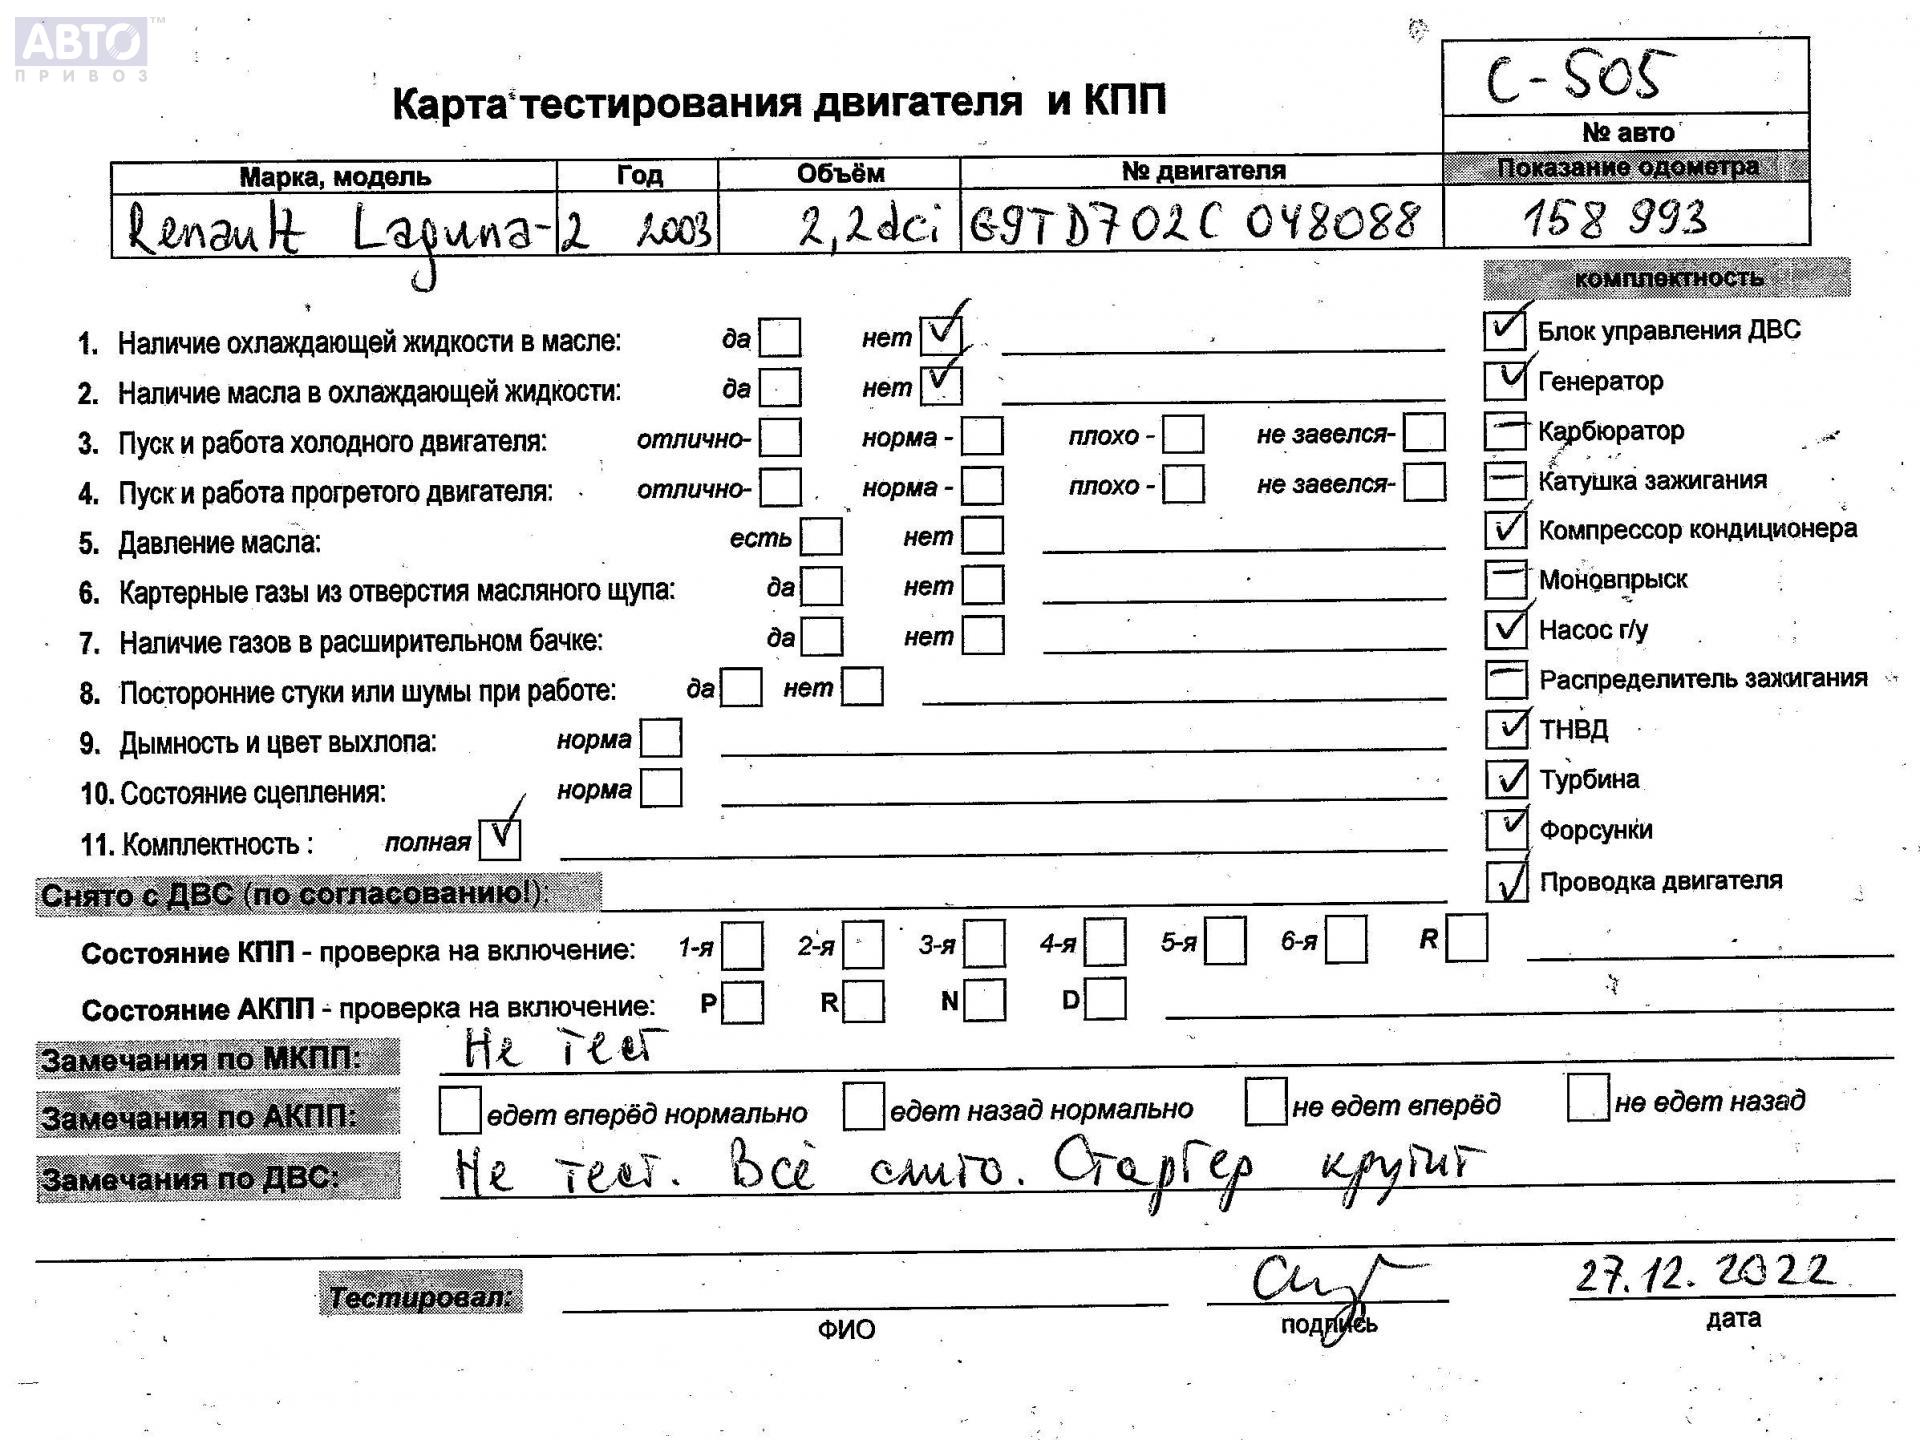 АВТО™
ПРИВОЗ
С-505
Карта тестирования двигателя и КПП
№ авто
Марка, модель Год Объём № двигателя Показание одометра
Renault Laguna-2 2003 2,2dci G9TD702C 048088 158 993
комплектность
1. Наличие охлаждающей жидкости в масле: да нет ✓
✓ Блок управления ДВС
2. Наличие масла в охлаждающей жидкости: да нет ✓
✓ Генератор
3. Пуск и работа холодного двигателя: отлично- норма - плохо - не завелся-
— Карбюратор
4. Пуск и работа прогретого двигателя: отлично- норма - плохо - не завелся-
— Катушка зажигания
5. Давление масла: есть нет
✓ Компрессор кондиционера
6. Картерные газы из отверстия масляного щупа: да нет
— Моновпрыск
7. Наличие газов в расширительном бачке: да нет
✓ Насос г/у
8. Посторонние стуки или шумы при работе: да нет
— Распределитель зажигания
9. Дымность и цвет выхлопа: норма
✓ ТНВД
10. Состояние сцепления: норма
✓ Турбина
11. Комплектность : полная ✓
✓ Форсунки
Снято с ДВС (по согласованию!):
✓ Проводка двигателя
Состояние КПП - проверка на включение: 1-я 2-я 3-я 4-я 5-я 6-я R
Состояние АКПП - проверка на включение: P R N D
Замечания по МКПП: Не тест
Замечания по АКПП: едет вперёд нормально едет назад нормально не едет вперёд не едет назад
Замечания по ДВС: Не тест. Всё слито. Стартер крутит
Тестировал: 27.12.2022
ФИО подпись дата